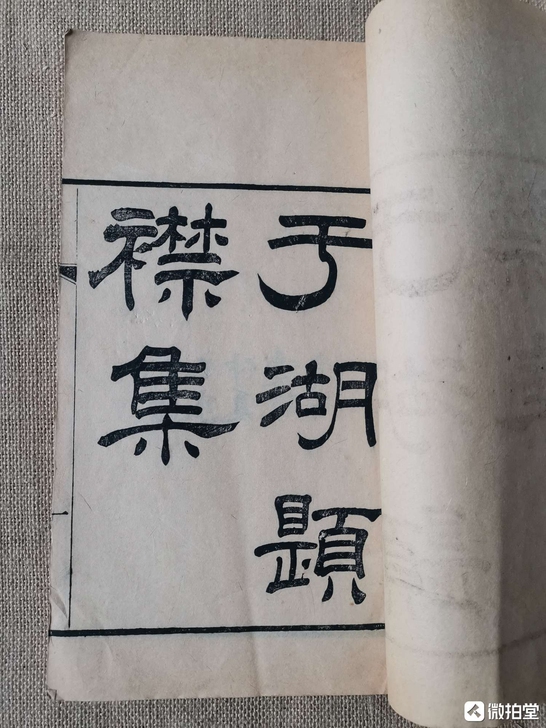 于湖題
襟集
微拍堂